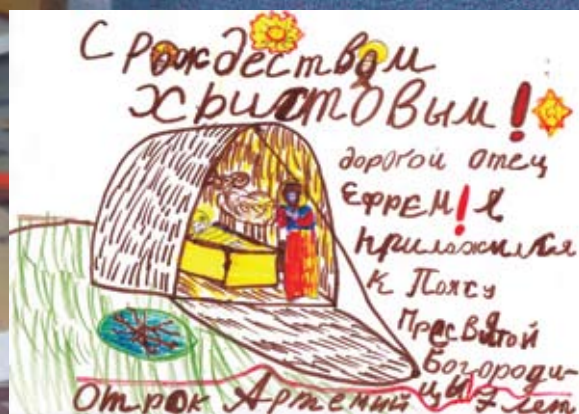 С Рождеством
Христовым!
дорогой отец
ЕФРЕМ! Я
приложился
к Поясу
Пресвятой
Богороди-
цы
отрок Артемий 7 лет